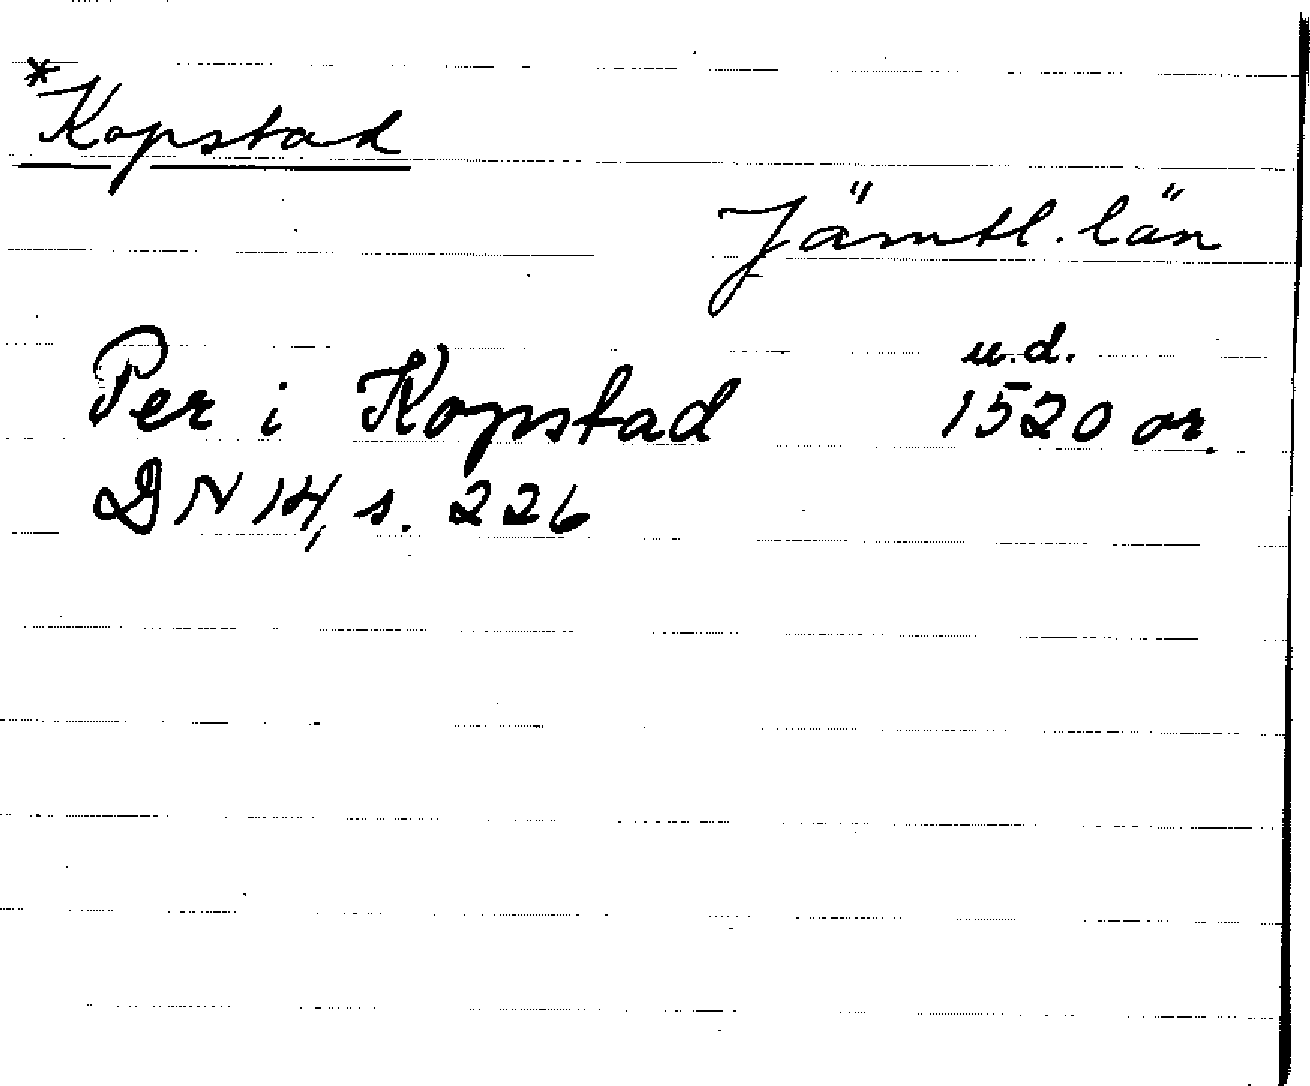 *Kopstad
Jämtl. län
Per i Kopstad u.d. 1520 or.
DN 14, s. 226